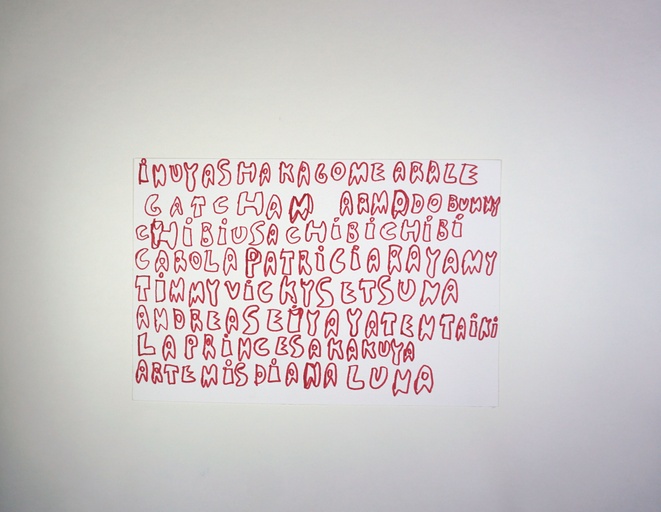 INUYASHA KAGOME ARALE
GATCHAN ARMADDO BUNNY
CHIBIUSA CHIBICHIBI
CAROLA PATRICIA RAYAMY
TIMMY VICKY SETSUNA
ANDREA SEIYA YATEN TAIKI
LA PRINCESA KAKUYA
ARTEMIS DIANA LUNA